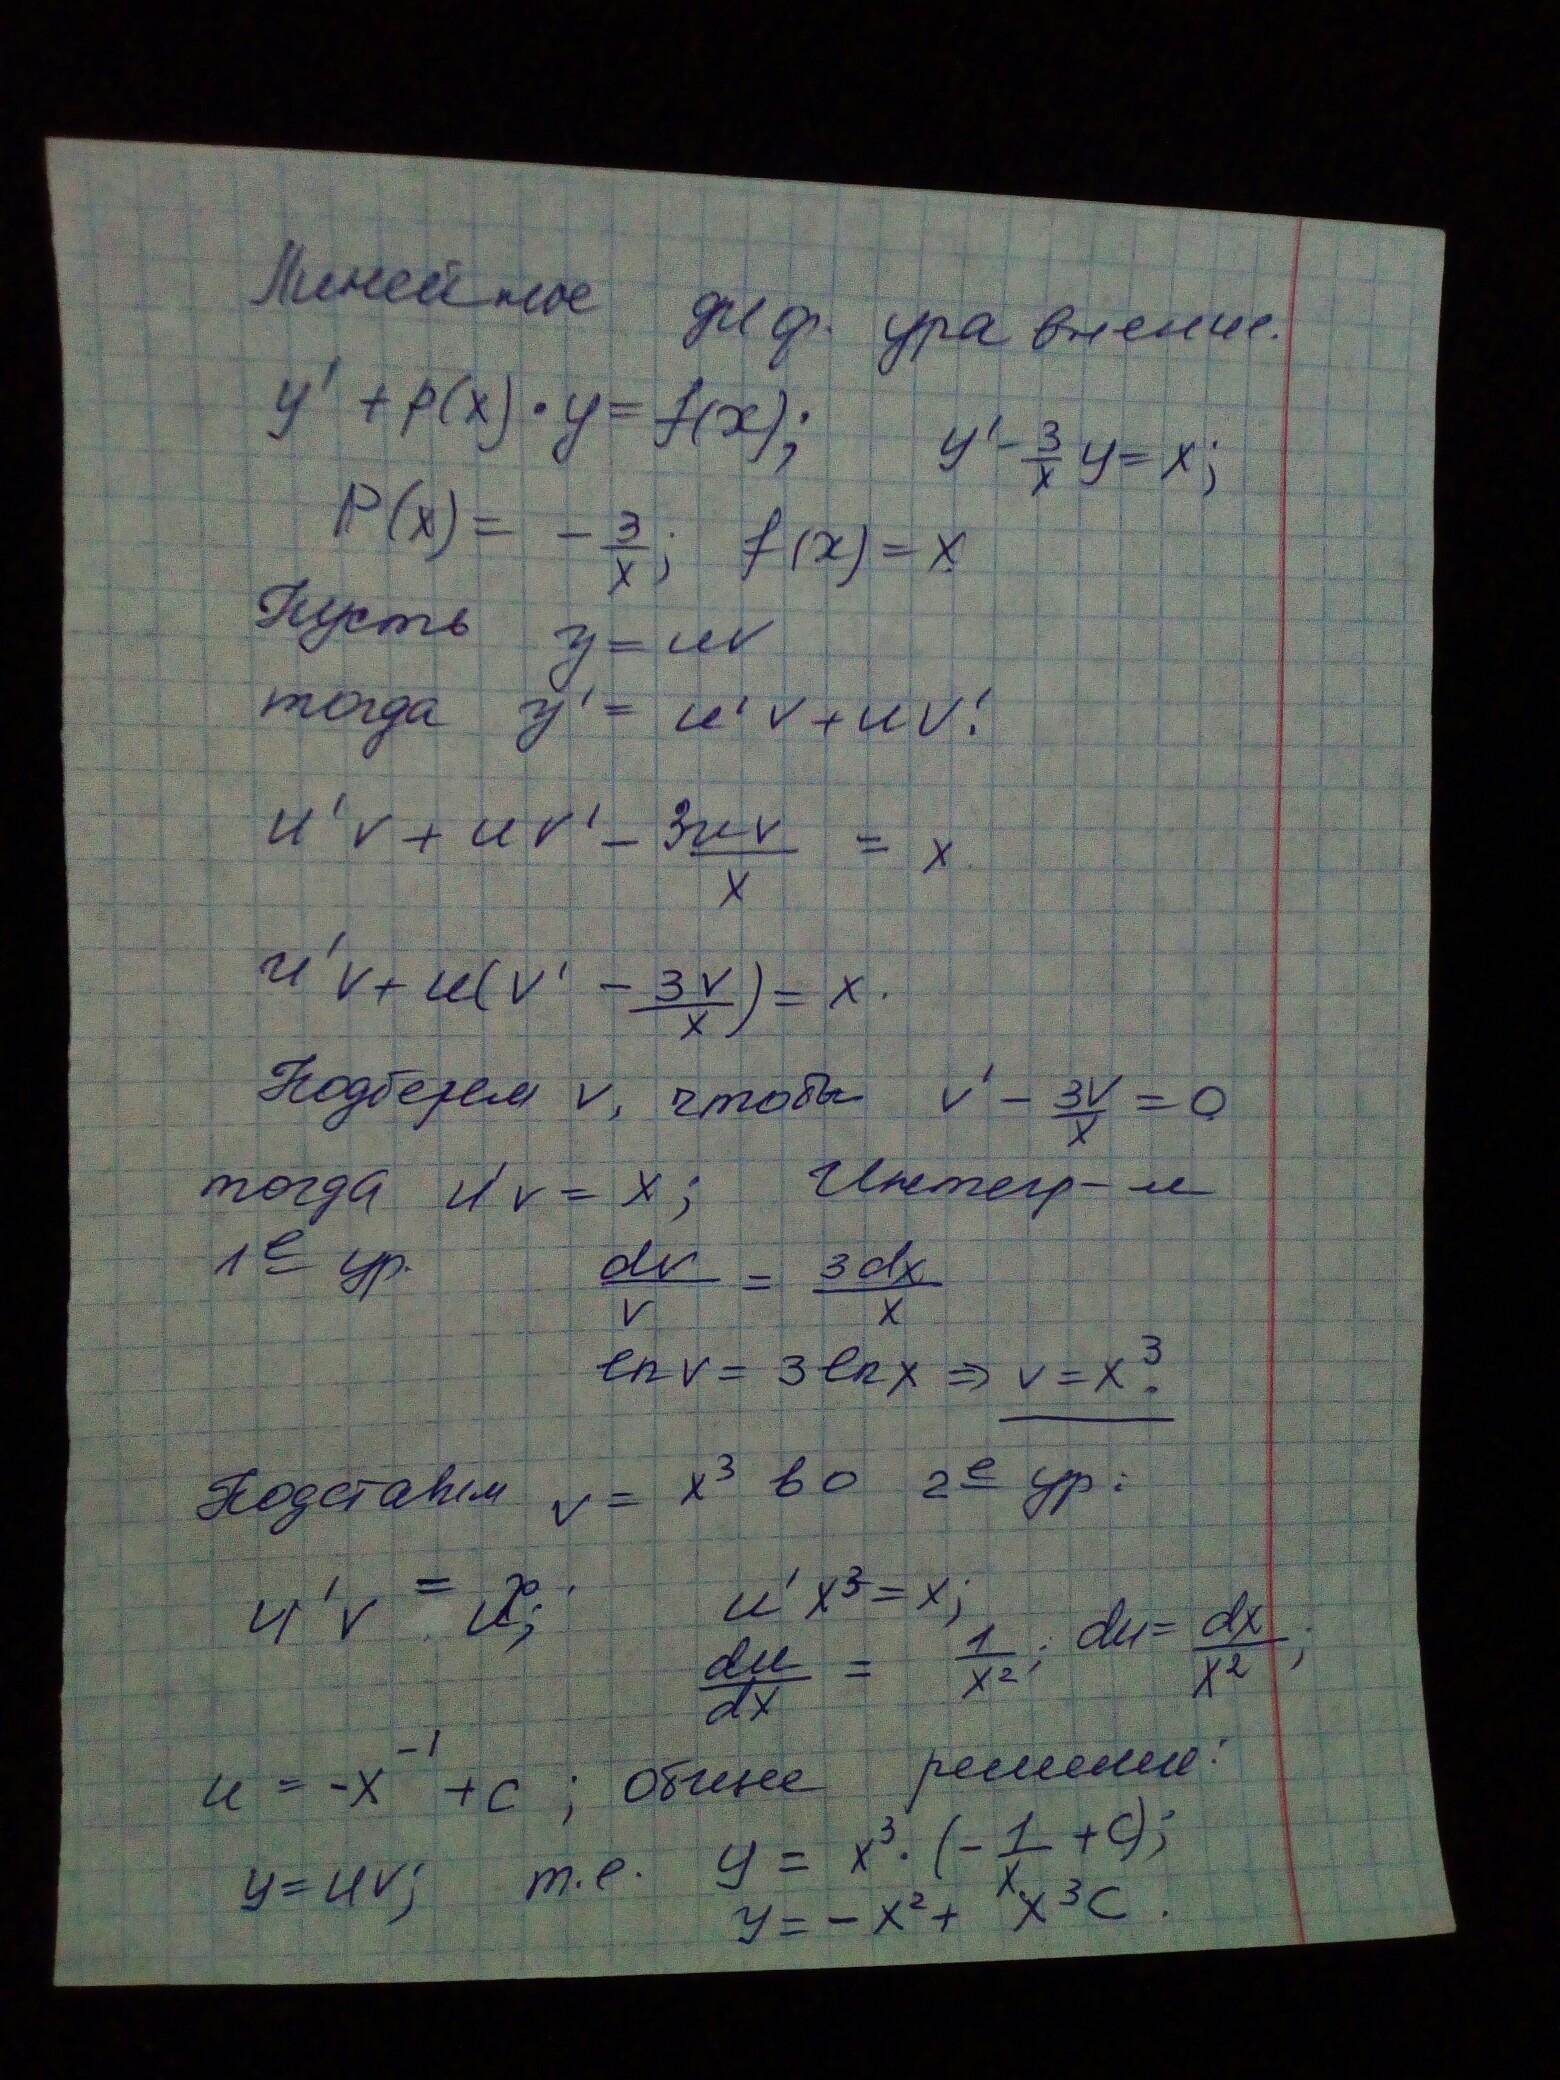 Линейное диф. уравнение.
y' + p(x)·y = f(x); y' - 3/x y = x;
P(x) = - 3/x; f(x) = x
Пусть y = uv
тогда y' = u'v + uv'.
u'v + uv' - 3uv/x = x.
u'v + u(v' - 3v/x) = x.
Подберем v, чтобы v' - 3v/x = 0
тогда u'v = x; Интегр-м
1е ур. dv/v = 3dx/x
ln v = 3 ln x ⇒ v = x³.
Подставим v = x³ во 2е ур:
u'v = x; u'x³ = x;
du/dx = 1/x²; du = dx/x²;
u = -x⁻¹ + c; общее решение:
y = uv; т.е. y = x³·(-1/x + C);
y = -x² + x³C.